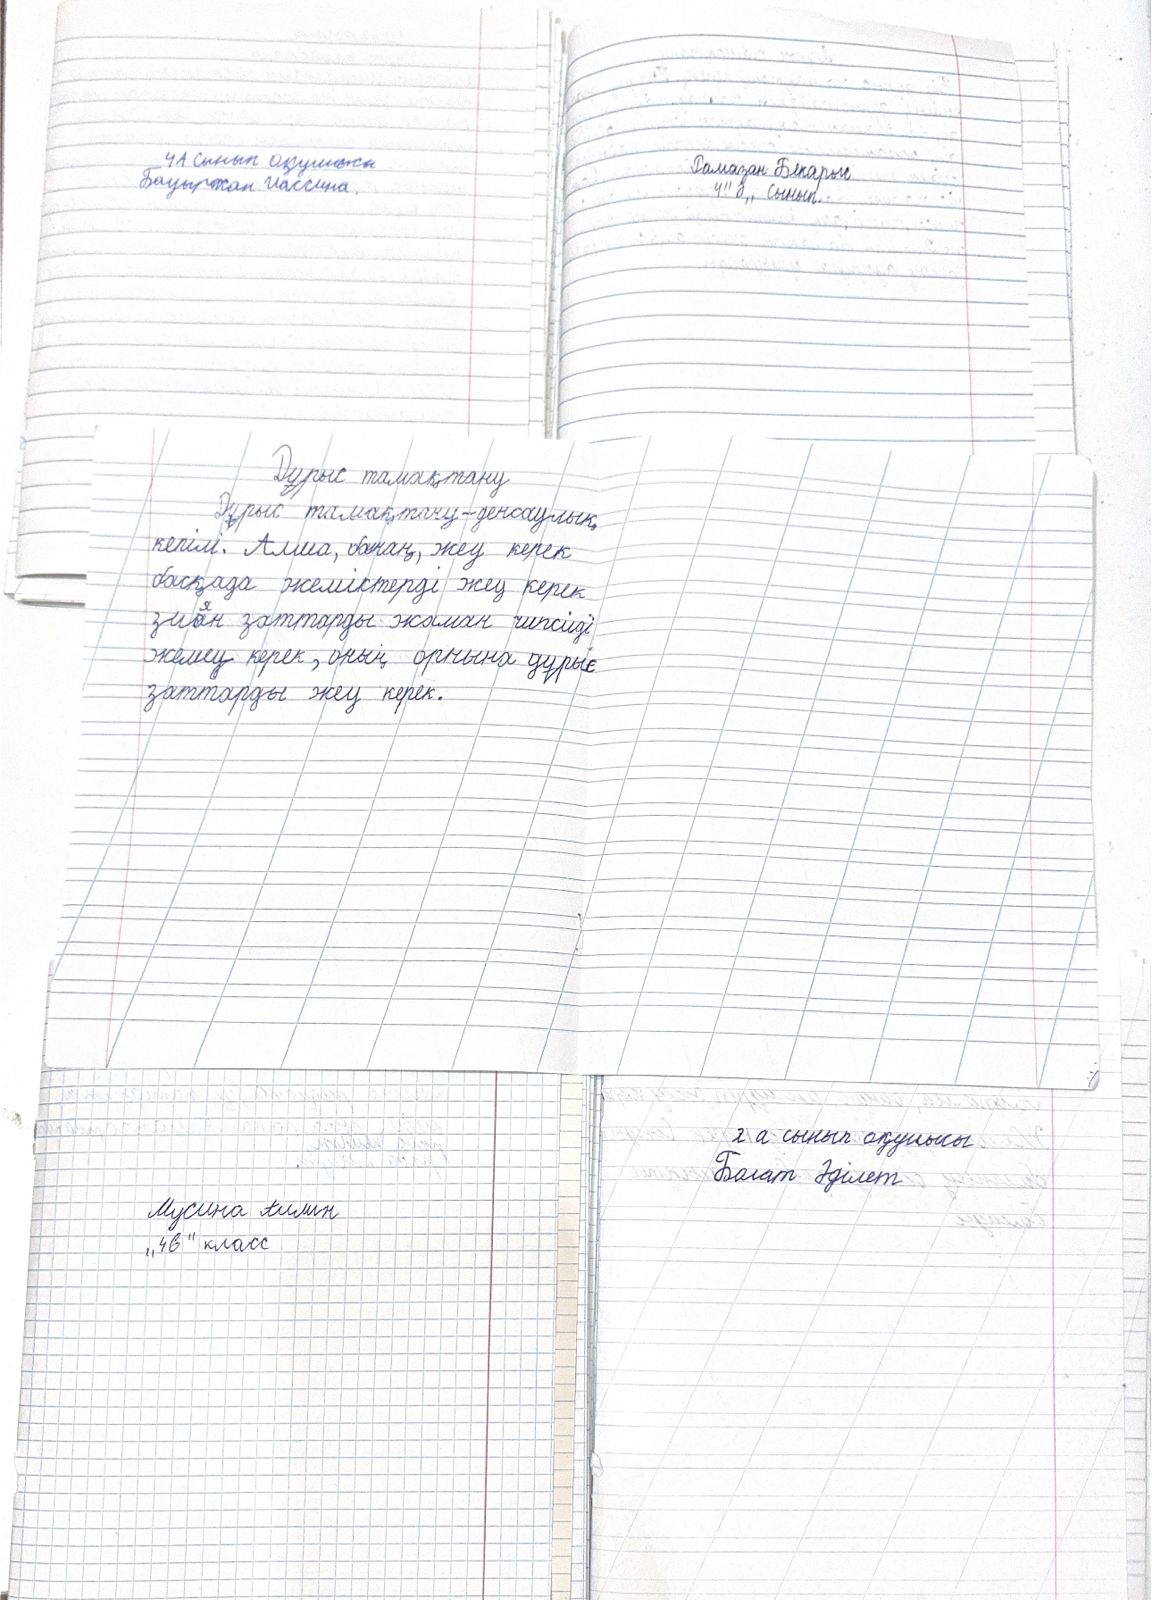 4А сынып оқушысы
Бауыржан
Рамазан Бекарыс
4"б„ сынып.
Дұрыс тамақтану
Дұрыс тамақтану-денсаулық
кепілі. Алма, банан, жеу керек
басқада жеміктерді жеу керек
зиян заттарды жаман чипсиді
жемеу керек, оның орнына дұрыс
заттарды жеу керек.
Мусина Аилин
„4в" класс
2 а сынып оқушысы
Болат Әділет